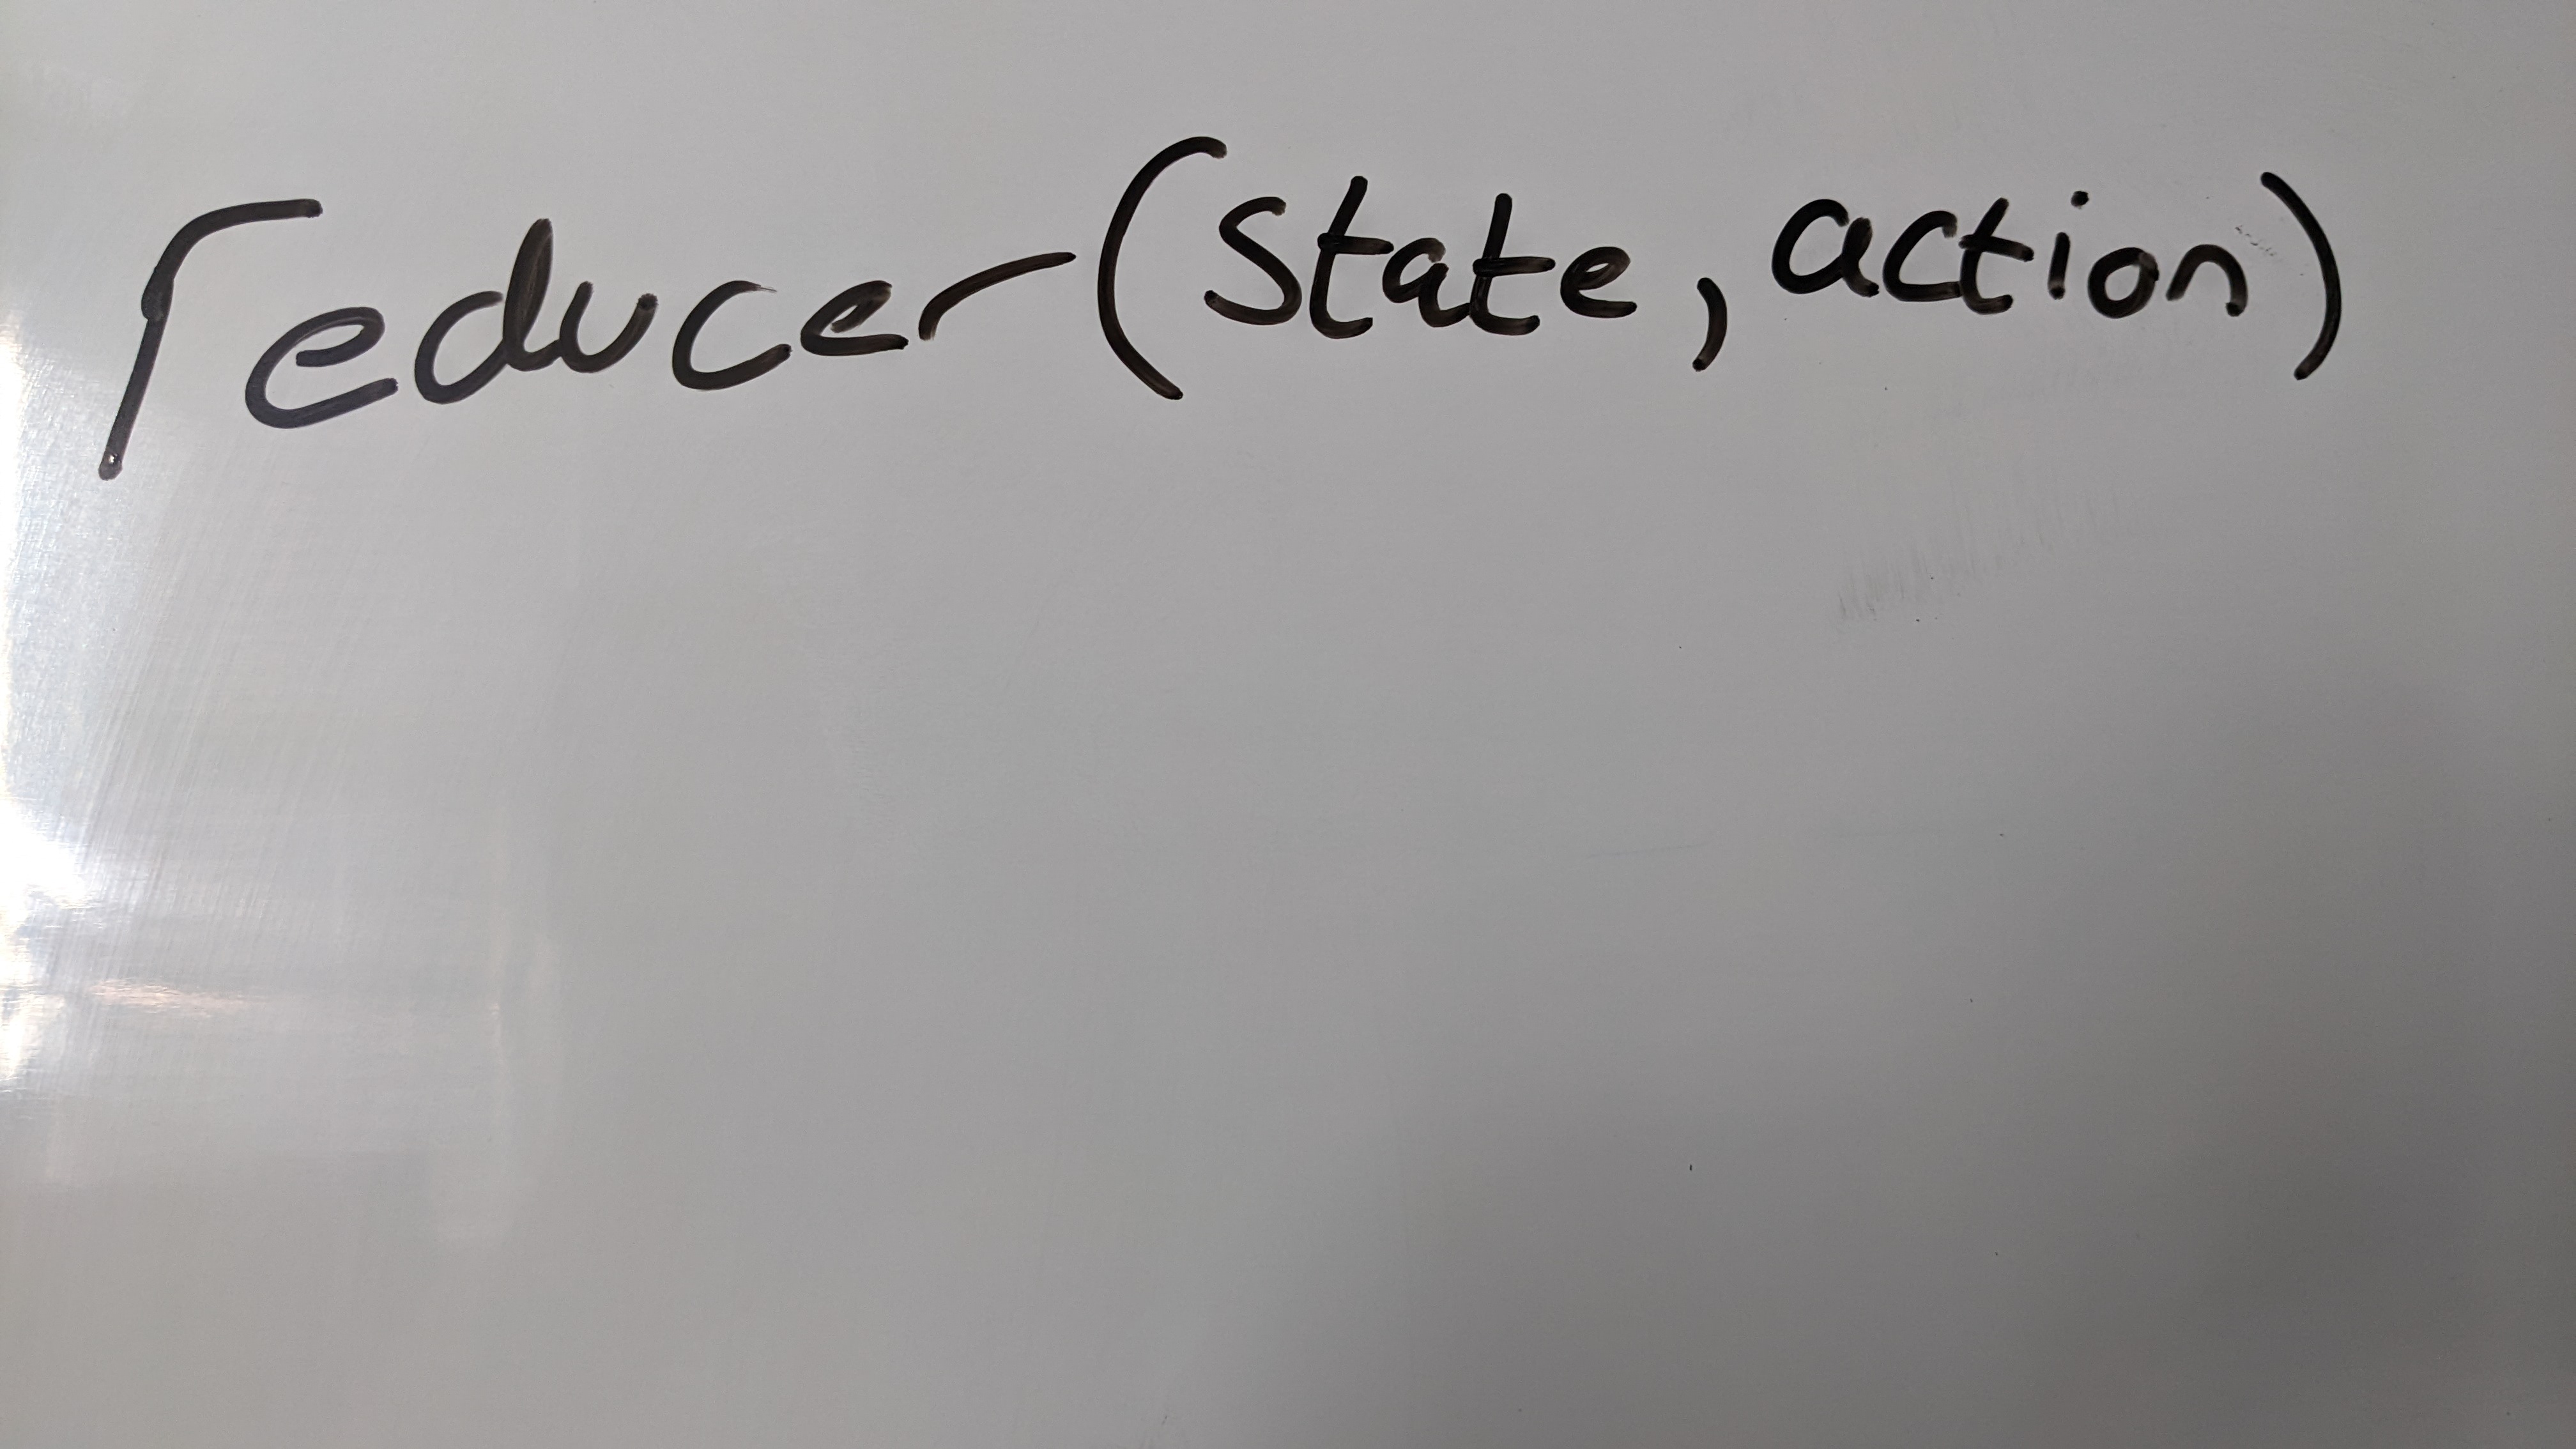 reducer(state, action)